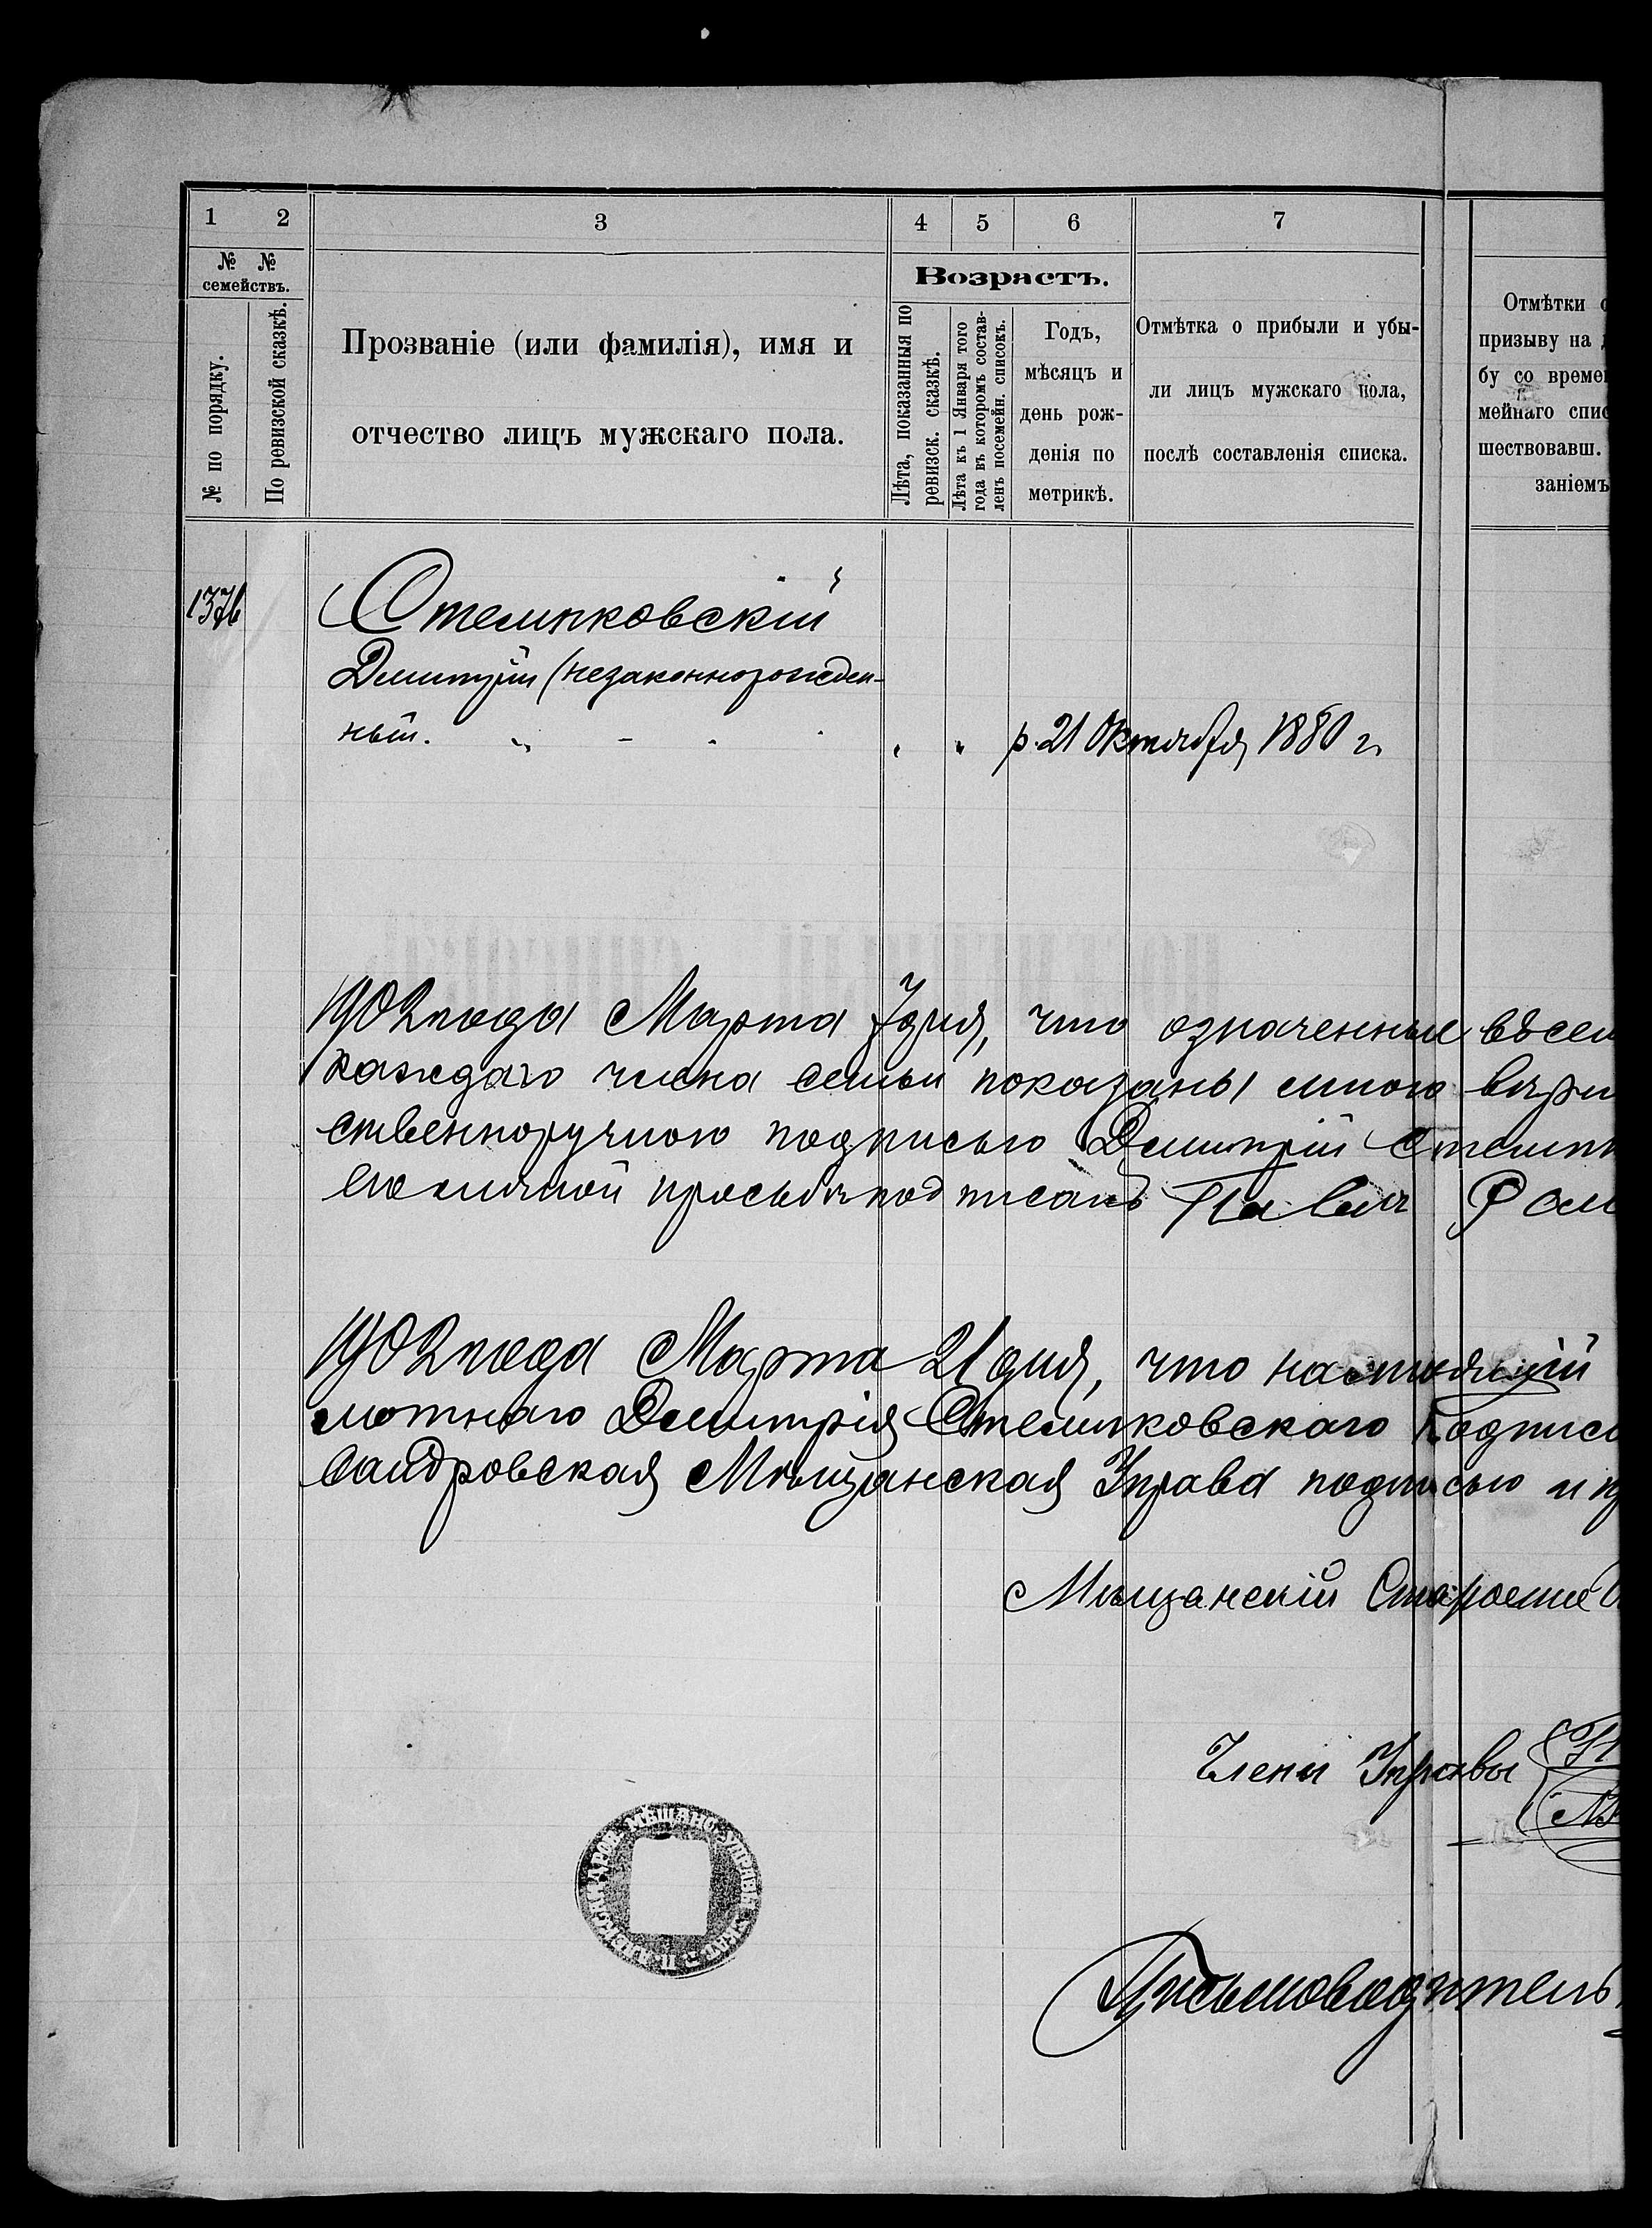 1 2 3 4 5 6 7
№ № семействъ.
№ по порядку.
По ревизской сказкѣ.
Прозваніе (или фамилія), имя и
отчество лицъ мужскаго пола.
Возрастъ.
Лѣта, показанныя по
ревизск. сказкѣ.
Лѣта къ 1 Января того
года въ которомъ состав-
ленъ посемейн. списокъ.
Годъ,
мѣсяцъ и
день рож-
денія по
метрикѣ.
Отмѣтка о прибыли и убы-
ли лицъ мужскаго пола,
послѣ составленія списка.
Отмѣтки
призыву на
бу со време
мейнаго спис
шествовавш.
заніемъ
1376
Стемпковскій
Дмитрій (незаконнорожден-
ный.
р. 21 Октября 1880 г.
1902 года Марта 7 дня, что означенные въ сем
каждаго члена семьи показаны мною вѣрн
ственноручною подписью Дмитрій Стемпк
его личной просьбѣ подписалъ Павелъ Ром
1902 года Марта 21 дня, что настоящій
мотнаго Дмитрія Стемпковскаго подписа
сандровская Мѣщанская Управа подписью и п
Мѣщанскій Старошина
Члены Управы
Письмоводитель
П. АЛЕКСАНДРОВ. МѢЩАНС. УПРАВЫ ЕКАТ. Г.